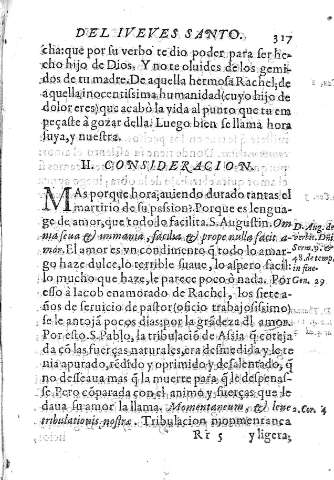 DEL IVEVES SANTO. 317
cha: que por su verbo te dio poder para ser he-
cho hijo de Dios. Y no te oluides de los gemi-
dos de tu madre. De aquella hermosa Rachel; de
aquella inocentissima humanidad (cuyo hijo de
dolor eres) que acabò la vida al punto que tu em
peçaste à gozar della. Luego bien se llama hora
suya, y nuestra.
II. CONSIDERACION.
MAs porque hora, auiendo durado tantas el
martirio de su passion? Porque es lengua-
ge de amor, que todo lo facilita. S. Augustin. Om
nia sæua & immania, facilia & prope nulla facit a-
mor. El amor es vn condimento q̃ todo lo amar-
go haze dulce, lo terrible suaue, lo aspero facil:
lo mucho que haze, le parece poco ò nada. Por
esso à Iacob enamorado de Rachel, los siete a-
ños de seruicio de pastor (oficio trabajosissimo)
se le antojã pocos dias: por la grãdeza dl amor.
Por esto S. Pablo, la tribulaciõ de Assia q̃ coteja
da cõ las fuerças naturales, era desmedida y le te
nia apurado, rẽdido y oprimido y desalentado, q̃
no desseaua mas q̃ la muerte para q̃ le despenas-
se. Pero cõparada con el animo y fuerças que le
daua su amor la llama. Momentaneum, & leue
tribulationis nostræ. Tribulacion momentanea
Rr 5 y ligera;
D. Aug. de
verbis. Dñi
Serm. 9. &
48. de temp.
in fine.
Gen. 29
2. Cor. 4